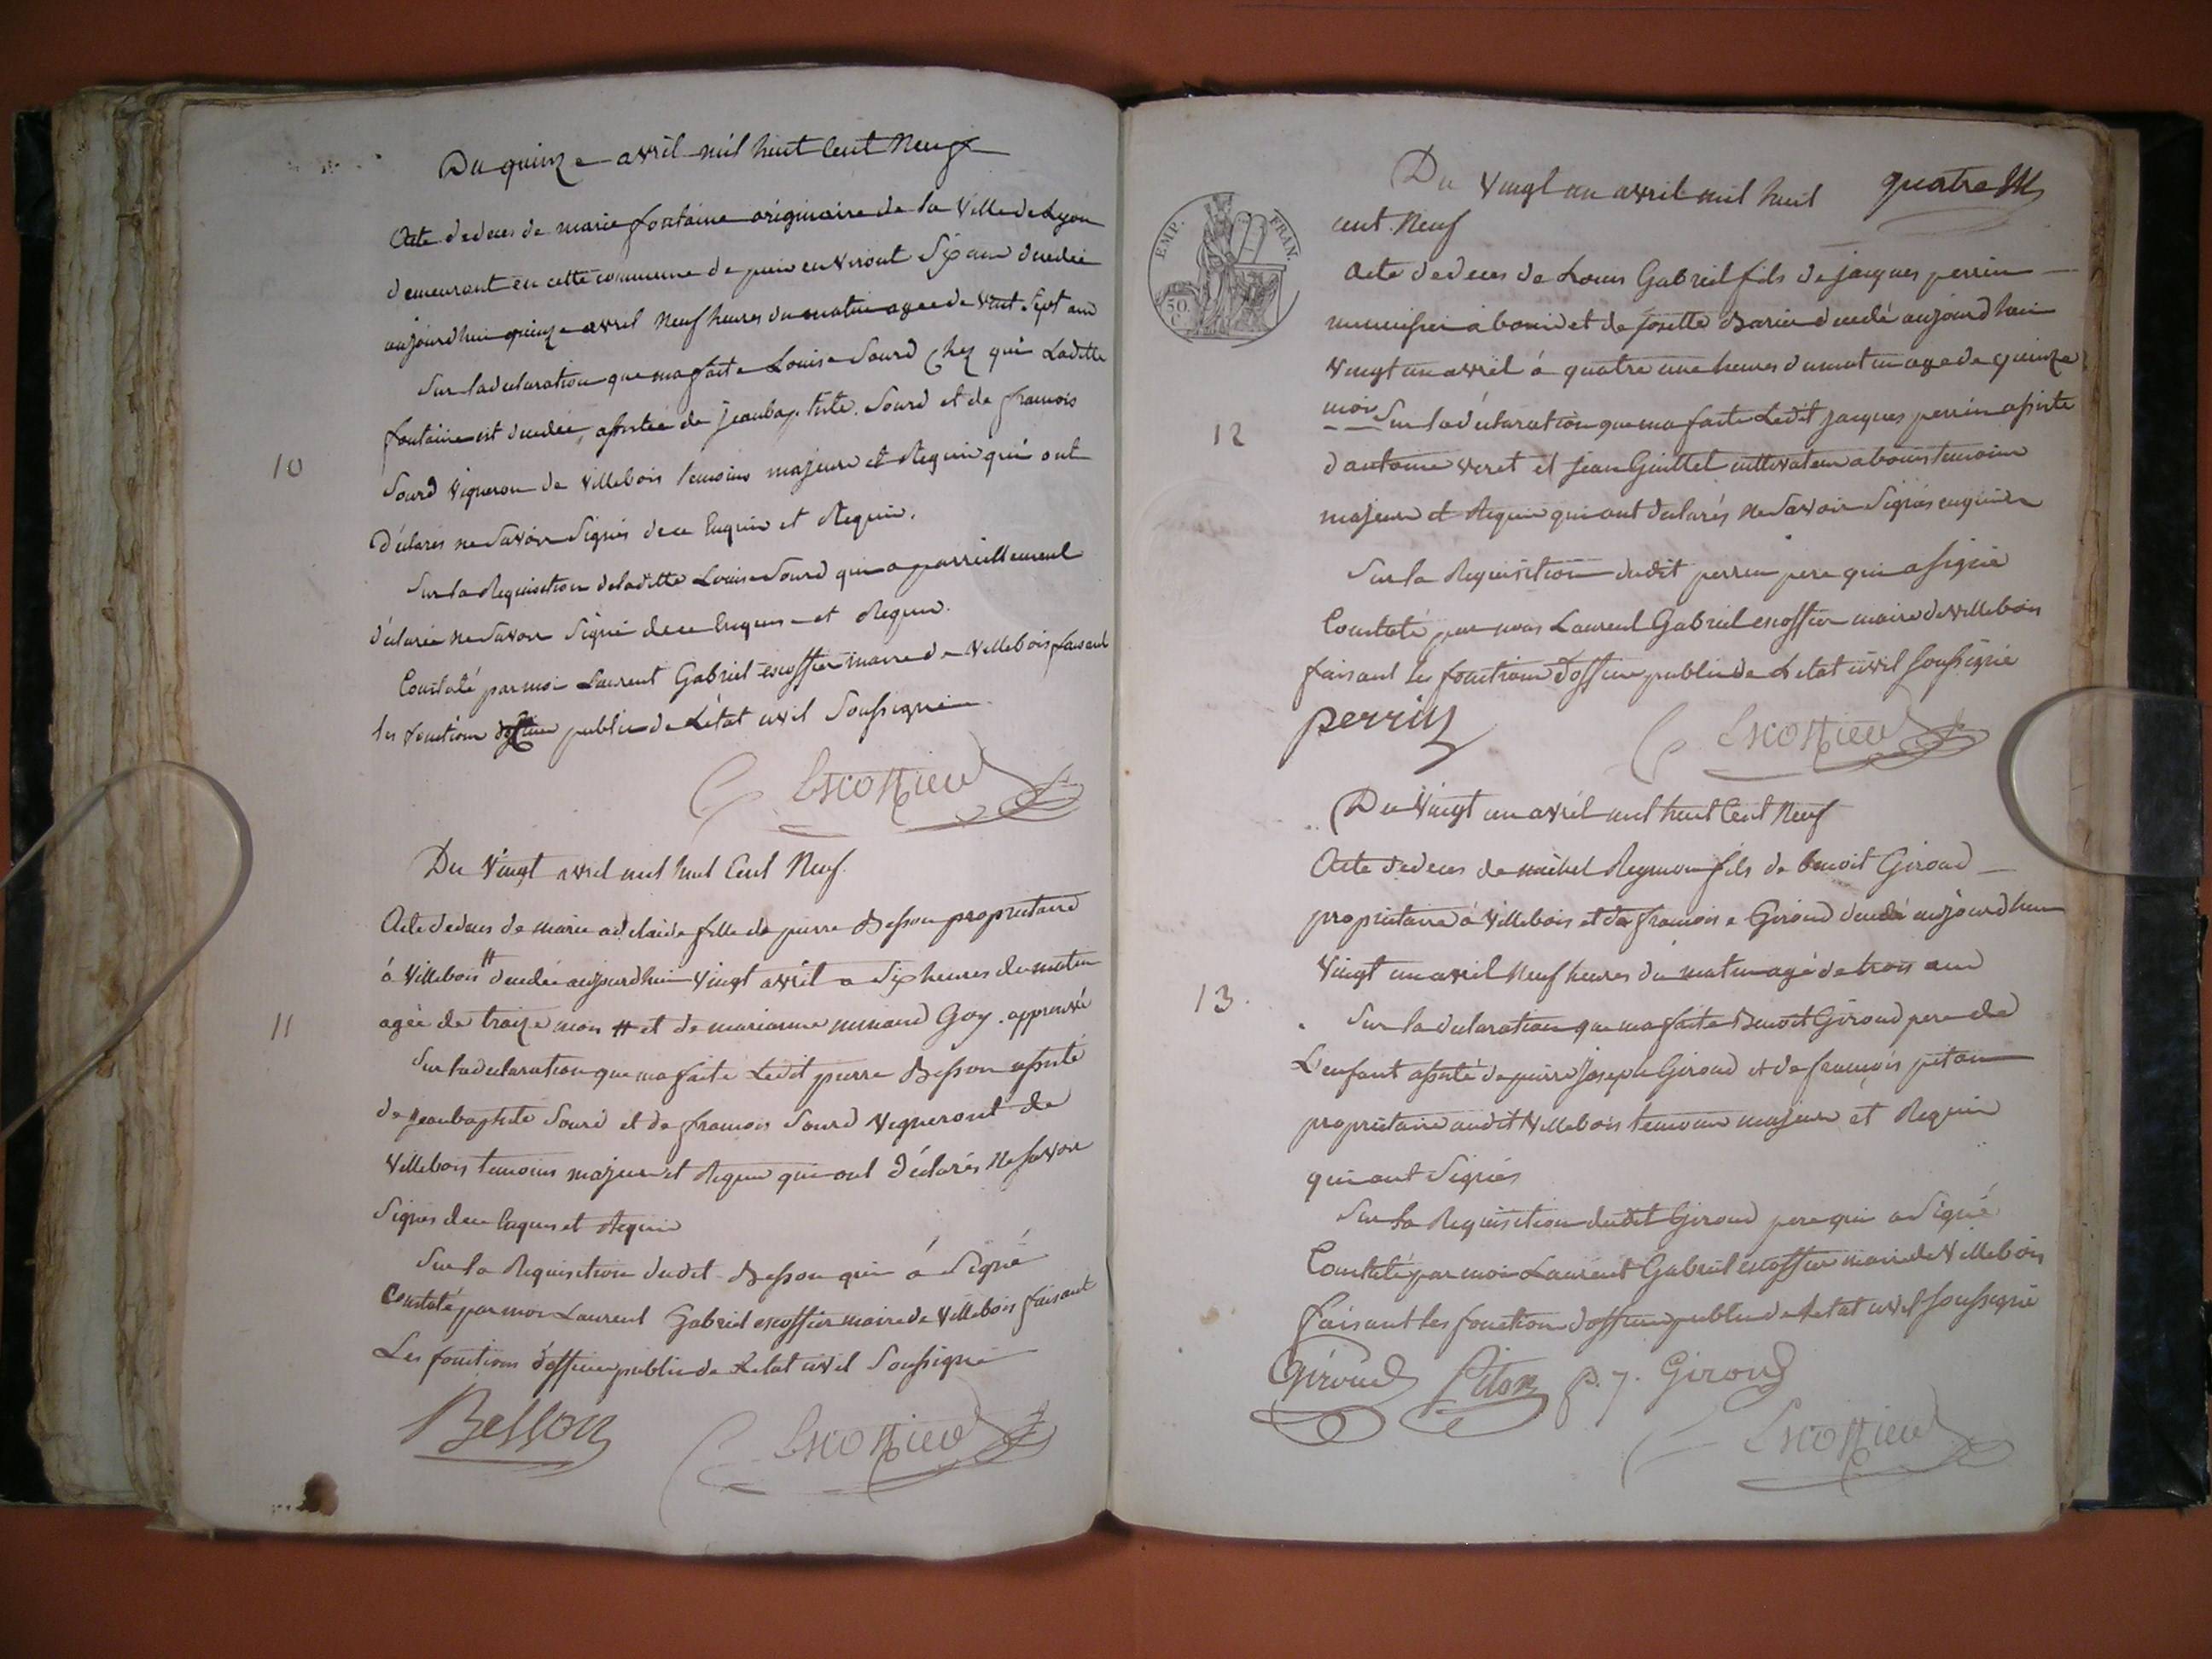 Du quinze avril mil huit Cent Neuf
Acte de deces de marie fontaine originaire de la Ville de Lyon
demeurant en cette commune depuis environt Six ans decedée
aujourdhui quinze avril Neuf heures du matin agee de vint Sept ans
Sur la declaration que ma faite Louise Sourd chez qui Laditte
fontaine est decedée, assistée de jeanbaptiste Sourd et de francois
10
Sourd vigneron de villebois temoins majeurs et Requis qui ont
Déclarés ne Savoir Signés de ce Enquis et Requis.
Sur la Requisition de laditte Louise Sourd qui a parreillement
déclarée ne Savoir Signé de ce Enquise et Requise.
Constaté par moi Laurent Gabriel escoffier maire de Villebois faisant
les fonctions public de Létat civil Soussigné
Escoffier
Du Vingt avril mil huit Cent Neuf.
Acte de deces de marie adelaide fille de pierre Besson proprietaire
á Villebois # decedée aujourdhui Vingt avril a Six heures du matin
11
agée de traize mois # et de marianne Goy. approuvé
Sur la declaration que ma faite Ledit pierre Besson assisté
de jeanbaptiste Sourd et de francois Sourd Vigneront de
Villebois temoins majeurs et Requis qui ont déclarés Ne Savoir
Signes de ce Enquis et Requis
Sur la Requisition dudit Besson qui á Signé
Constaté par moi Laurent Gabriel escoffier maire de Villebois faisant
Les fonctions d'officier public de Letat civil Soussigné
Besson
Escoffier
EMP. FRAN.
50
C
Du Vingt un avril mil huit
quatre
cent Neuf
Acte de deces de Louis Gabriel fils de jacques perrin
á bouis et de josette decedé aujourdhui
Vingt un avril á quatre une heures du matin age de quinze
mois Sur la declaration que ma faite Ledit jacques perrin assisté
12
d'antoine veret et jean Guillet cultivateurs a bouis temoins
majeurs et Requis qui ont declarés Ne Savoir Signés enquis
Sur la Requisition dudit perrin pere qui a signé
Constaté par nous Laurent Gabriel escoffier maire de villebois
faisant les fonctions d'officier public de Letat civil soussigné
perrin
Escoffier
Du Vingt un avril mil huit Cent Neuf
Acte de deces de michel Reymon fils de benoit Giroud
proprietaire á Villebois et de francoise Giroud decedé aujourdhui
Vingt un avril Neuf heures du matin agé de trois ans
13.
Sur la declaration que ma faite Benoit Giroud pere de
L'enfant assisté de pierre joseph Giroud et de françois piton
proprietaire audit Villebois temoins majeurs et Requis
qui ont Signés
Sur la Requisition dudit Giroud pere qui a Signé
Constaté par moi Laurent Gabriel escoffier maire de Villebois
faisant les fonctions d'officier public de Letat civil soussigné
Giroud Piton p. j. Giroud
Escoffier